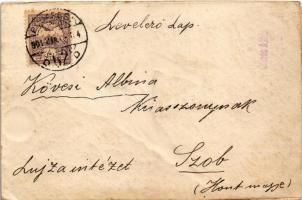 Levelező Lap.
Kövesi Albina
Kisasszonynak
Lujza intézet
Szob
(Hont megye)